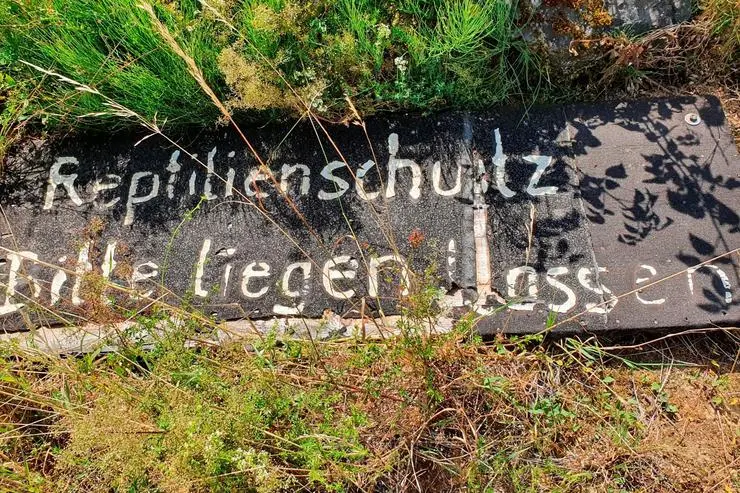 Reptilienschutz
Bitte liegen lassen